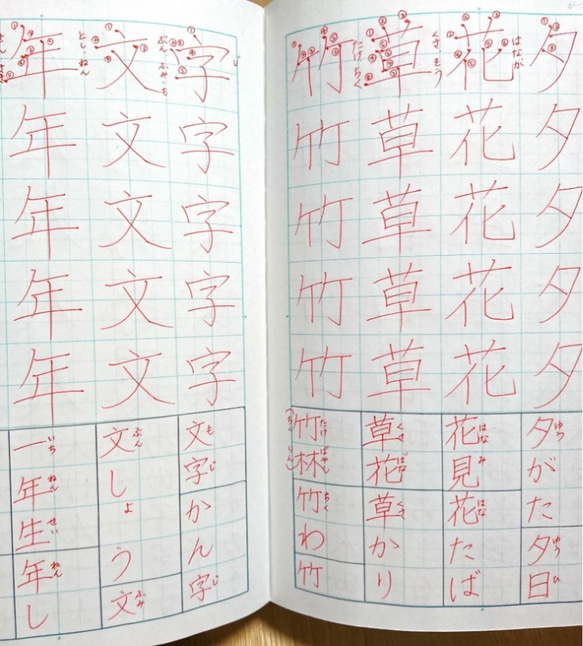 夕夕夕夕夕
ゆう
夕がた
ゆう ひ
夕日
はな か
花花花花花
はな み
花見
はな
花たば
くさ そう
草草草草草
くさ ばな
草花
くさ
草かり
たけ ちく
竹竹竹竹竹
たけ ばやし
竹林
ちく
竹わ
竹
じ
字字字字字
も じ
文字
じ
かん字
ぶん ふみ・も
文文文文文
ぶん
文しょう
ふみ
文
とし ねん
年年年年年
いち ねん せい
一年生
ねん
年し